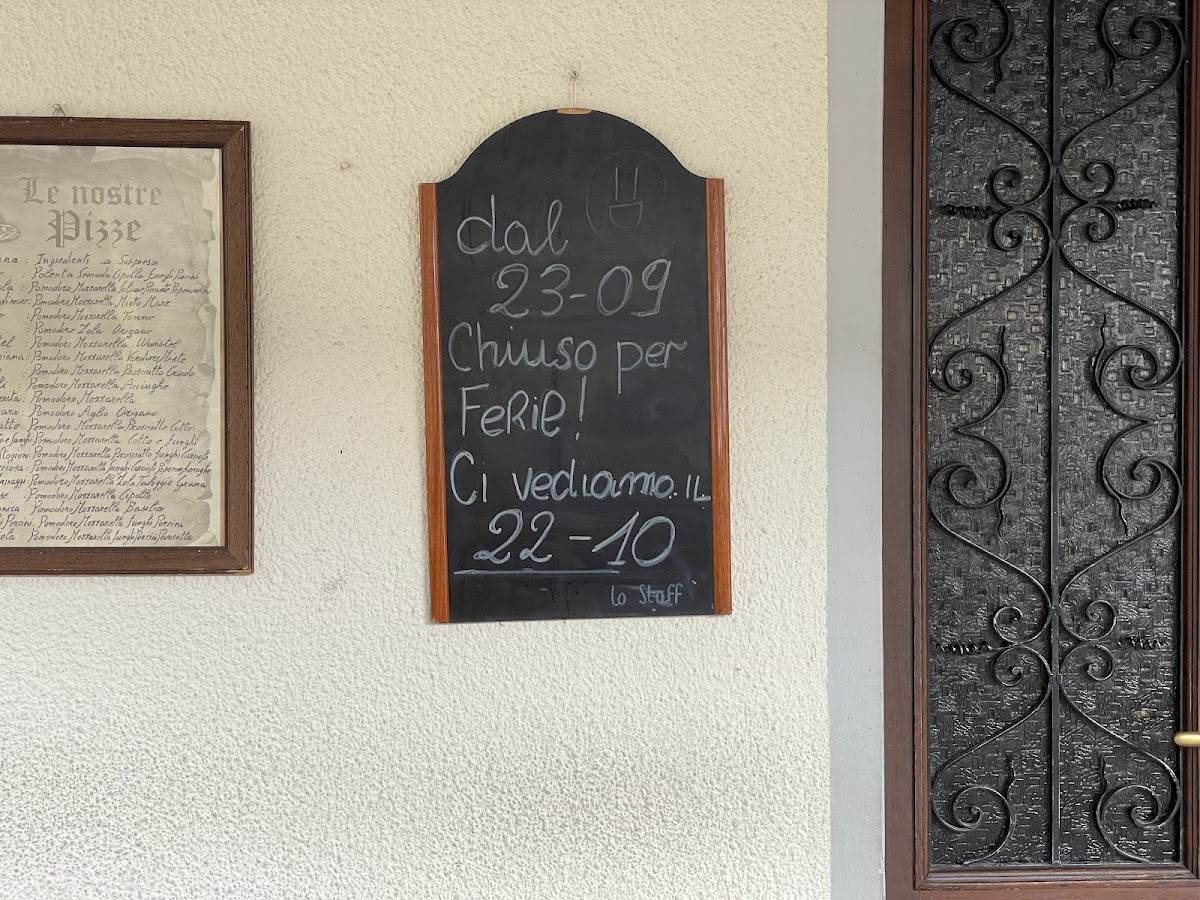 Le nostre
Pizze
: Ingredienti a Sorpresa
: Polenta Cipolla Funghi Porcini
: Pomodoro Mozzarella Salame Piccante Peperoncini
: Pomodoro Mozzarella Misto Mare
: Pomodoro Mozzarella Tonno
: Pomodoro Zola Origano
: Pomodoro Mozzarella Wurstel
: Pomodoro Mozzarella Verdure Miste
: Pomodoro Mozzarella Prosciutto Crudo
: Pomodoro Mozzarella Acciughe
: Pomodoro, Mozzarella
: Pomodoro Aglio Origano
: Pomodoro Mozzarella Prosciutto Cotto
: Pomodoro Mozzarella Cotto e Funghi
: Pomodoro Mozzarella Prosciutto Funghi Carciofi
: Pomodoro Mozzarella Funghi Carciofi Peperoni
: Pomodoro Mozzarella Zola Taleggio Grana
: Pomodoro Mozzarella Cipolle
: Pomodoro Mozzarella Basilico
: Pomodoro Mozzarella Funghi Porcini
: Pomodoro Mozzarella Funghi Porcini Pancetta
dal
23-09
Chiuso per
Ferie!
Ci vediamo. IL
22-10
lo Staff